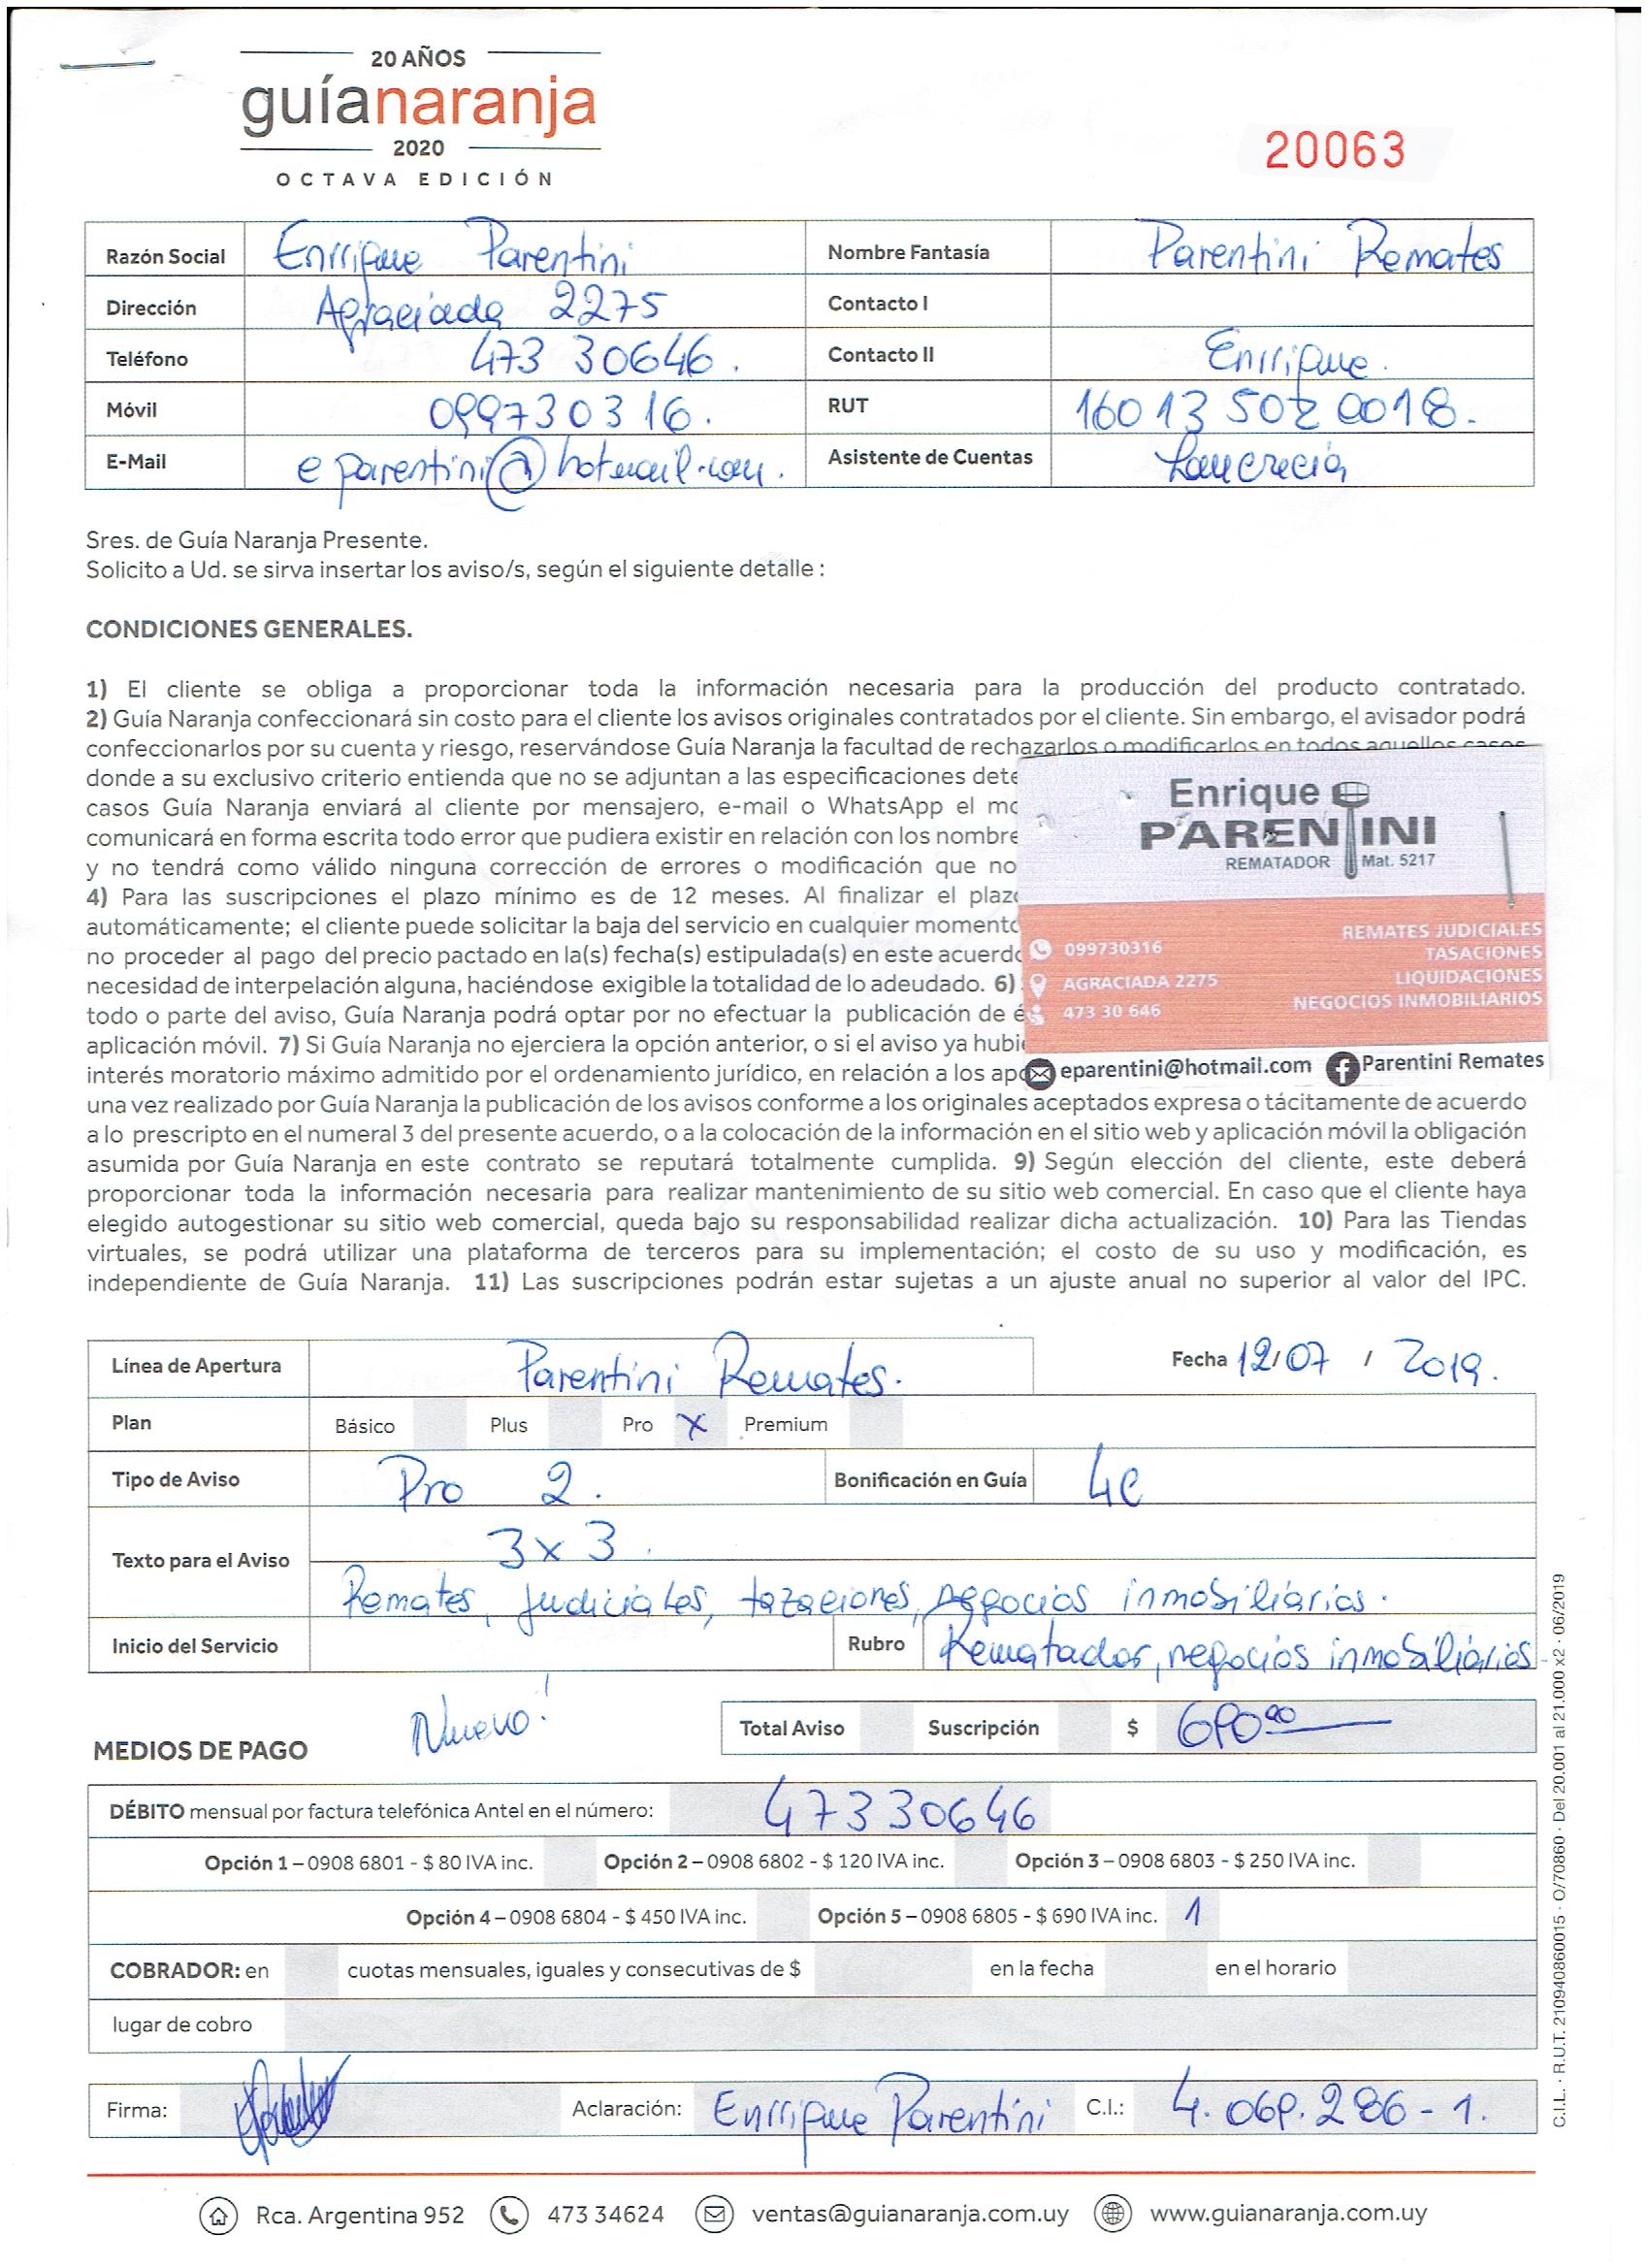 20 AÑOS
guíanaranja
2020
OCTAVA EDICIÓN
20063
Razón Social Enrrique Parentini Nombre Fantasía Parentini Remates
Dirección Agraciada 2275 Contacto I
Teléfono 473 30646. Contacto II Enrrique.
Móvil 099730316. RUT 160135020018.
E-Mail eparentini@hotmail.com. Asistente de Cuentas
Sres. de Guía Naranja Presente.
Solicito a Ud. se sirva insertar los aviso/s, según el siguiente detalle :
CONDICIONES GENERALES.
1) El cliente se obliga a proporcionar toda la información necesaria para la producción del producto contratado.
2) Guía Naranja confeccionará sin costo para el cliente los avisos originales contratados por el cliente. Sin embargo, el avisador podrá
confeccionarlos por su cuenta y riesgo, reservándose Guía Naranja la facultad de rechazarlos o modificarlos en todos aquellos casos
donde a su exclusivo criterio entienda que no se adjuntan a las especificaciones dete
casos Guía Naranja enviará al cliente por mensajero, e-mail o WhatsApp el mo
comunicará en forma escrita todo error que pudiera existir en relación con los nombre
y no tendrá como válido ninguna corrección de errores o modificación que no
4) Para las suscripciones el plazo mínimo es de 12 meses. Al finalizar el plazo
automáticamente; el cliente puede solicitar la baja del servicio en cualquier momento
no proceder al pago del precio pactado en la(s) fecha(s) estipulada(s) en este acuerdo
necesidad de interpelación alguna, haciéndose exigible la totalidad de lo adeudado. 6)
todo o parte del aviso, Guía Naranja podrá optar por no efectuar la publicación de é
aplicación móvil. 7) Si Guía Naranja no ejerciera la opción anterior, o si el aviso ya hubi
interés moratorio máximo admitido por el ordenamiento jurídico, en relación a los apo
una vez realizado por Guía Naranja la publicación de los avisos conforme a los originales aceptados expresa o tácitamente de acuerdo
a lo prescripto en el numeral 3 del presente acuerdo, o a la colocación de la información en el sitio web y aplicación móvil la obligación
asumida por Guía Naranja en este contrato se reputará totalmente cumplida. 9) Según elección del cliente, este deberá
proporcionar toda la información necesaria para realizar mantenimiento de su sitio web comercial. En caso que el cliente haya
elegido autogestionar su sitio web comercial, queda bajo su responsabilidad realizar dicha actualización. 10) Para las Tiendas
virtuales, se podrá utilizar una plataforma de terceros para su implementación; el costo de su uso y modificación, es
independiente de Guía Naranja. 11) Las suscripciones podrán estar sujetas a un ajuste anual no superior al valor del IPC.
Enrique
PARENTINI
REMATADOR Mat. 5217
REMATES JUDICIALES
099730316 TASACIONES
AGRACIADA 2275 LIQUIDACIONES
473 30 646 NEGOCIOS INMOBILIARIOS
eparentini@hotmail.com Parentini Remates
Línea de Apertura Parentini Remates. Fecha 12/07 / 2019.
Plan Básico Plus Pro X Premium
Tipo de Aviso Pro 2. Bonificación en Guía 4C
Texto para el Aviso 3x3.
Remates, judiciales, tazaciones, negocios inmobiliários.
Inicio del Servicio Rubro Rematador, negocios inmobiliários
Nuevo!
Total Aviso Suscripción $ 690.00
MEDIOS DE PAGO
DÉBITO mensual por factura telefónica Antel en el número: 47330646
Opción 1 – 0908 6801 - $ 80 IVA inc. Opción 2 – 0908 6802 - $ 120 IVA inc. Opción 3 – 0908 6803 - $ 250 IVA inc.
Opción 4 – 0908 6804 - $ 450 IVA inc. Opción 5 – 0908 6805 - $ 690 IVA inc. 1
COBRADOR: en cuotas mensuales, iguales y consecutivas de $ en la fecha en el horario
lugar de cobro
Firma: Aclaración: Enrrique Parentini C.I.: 4.069.286-1.
Rca. Argentina 952 473 34624 ventas@guianaranja.com.uy www.guianaranja.com.uy
C.I.L. · R.U.T. 210940860015 · O/70860 · Del 20.001 al 21.000 x2 · 06/2019